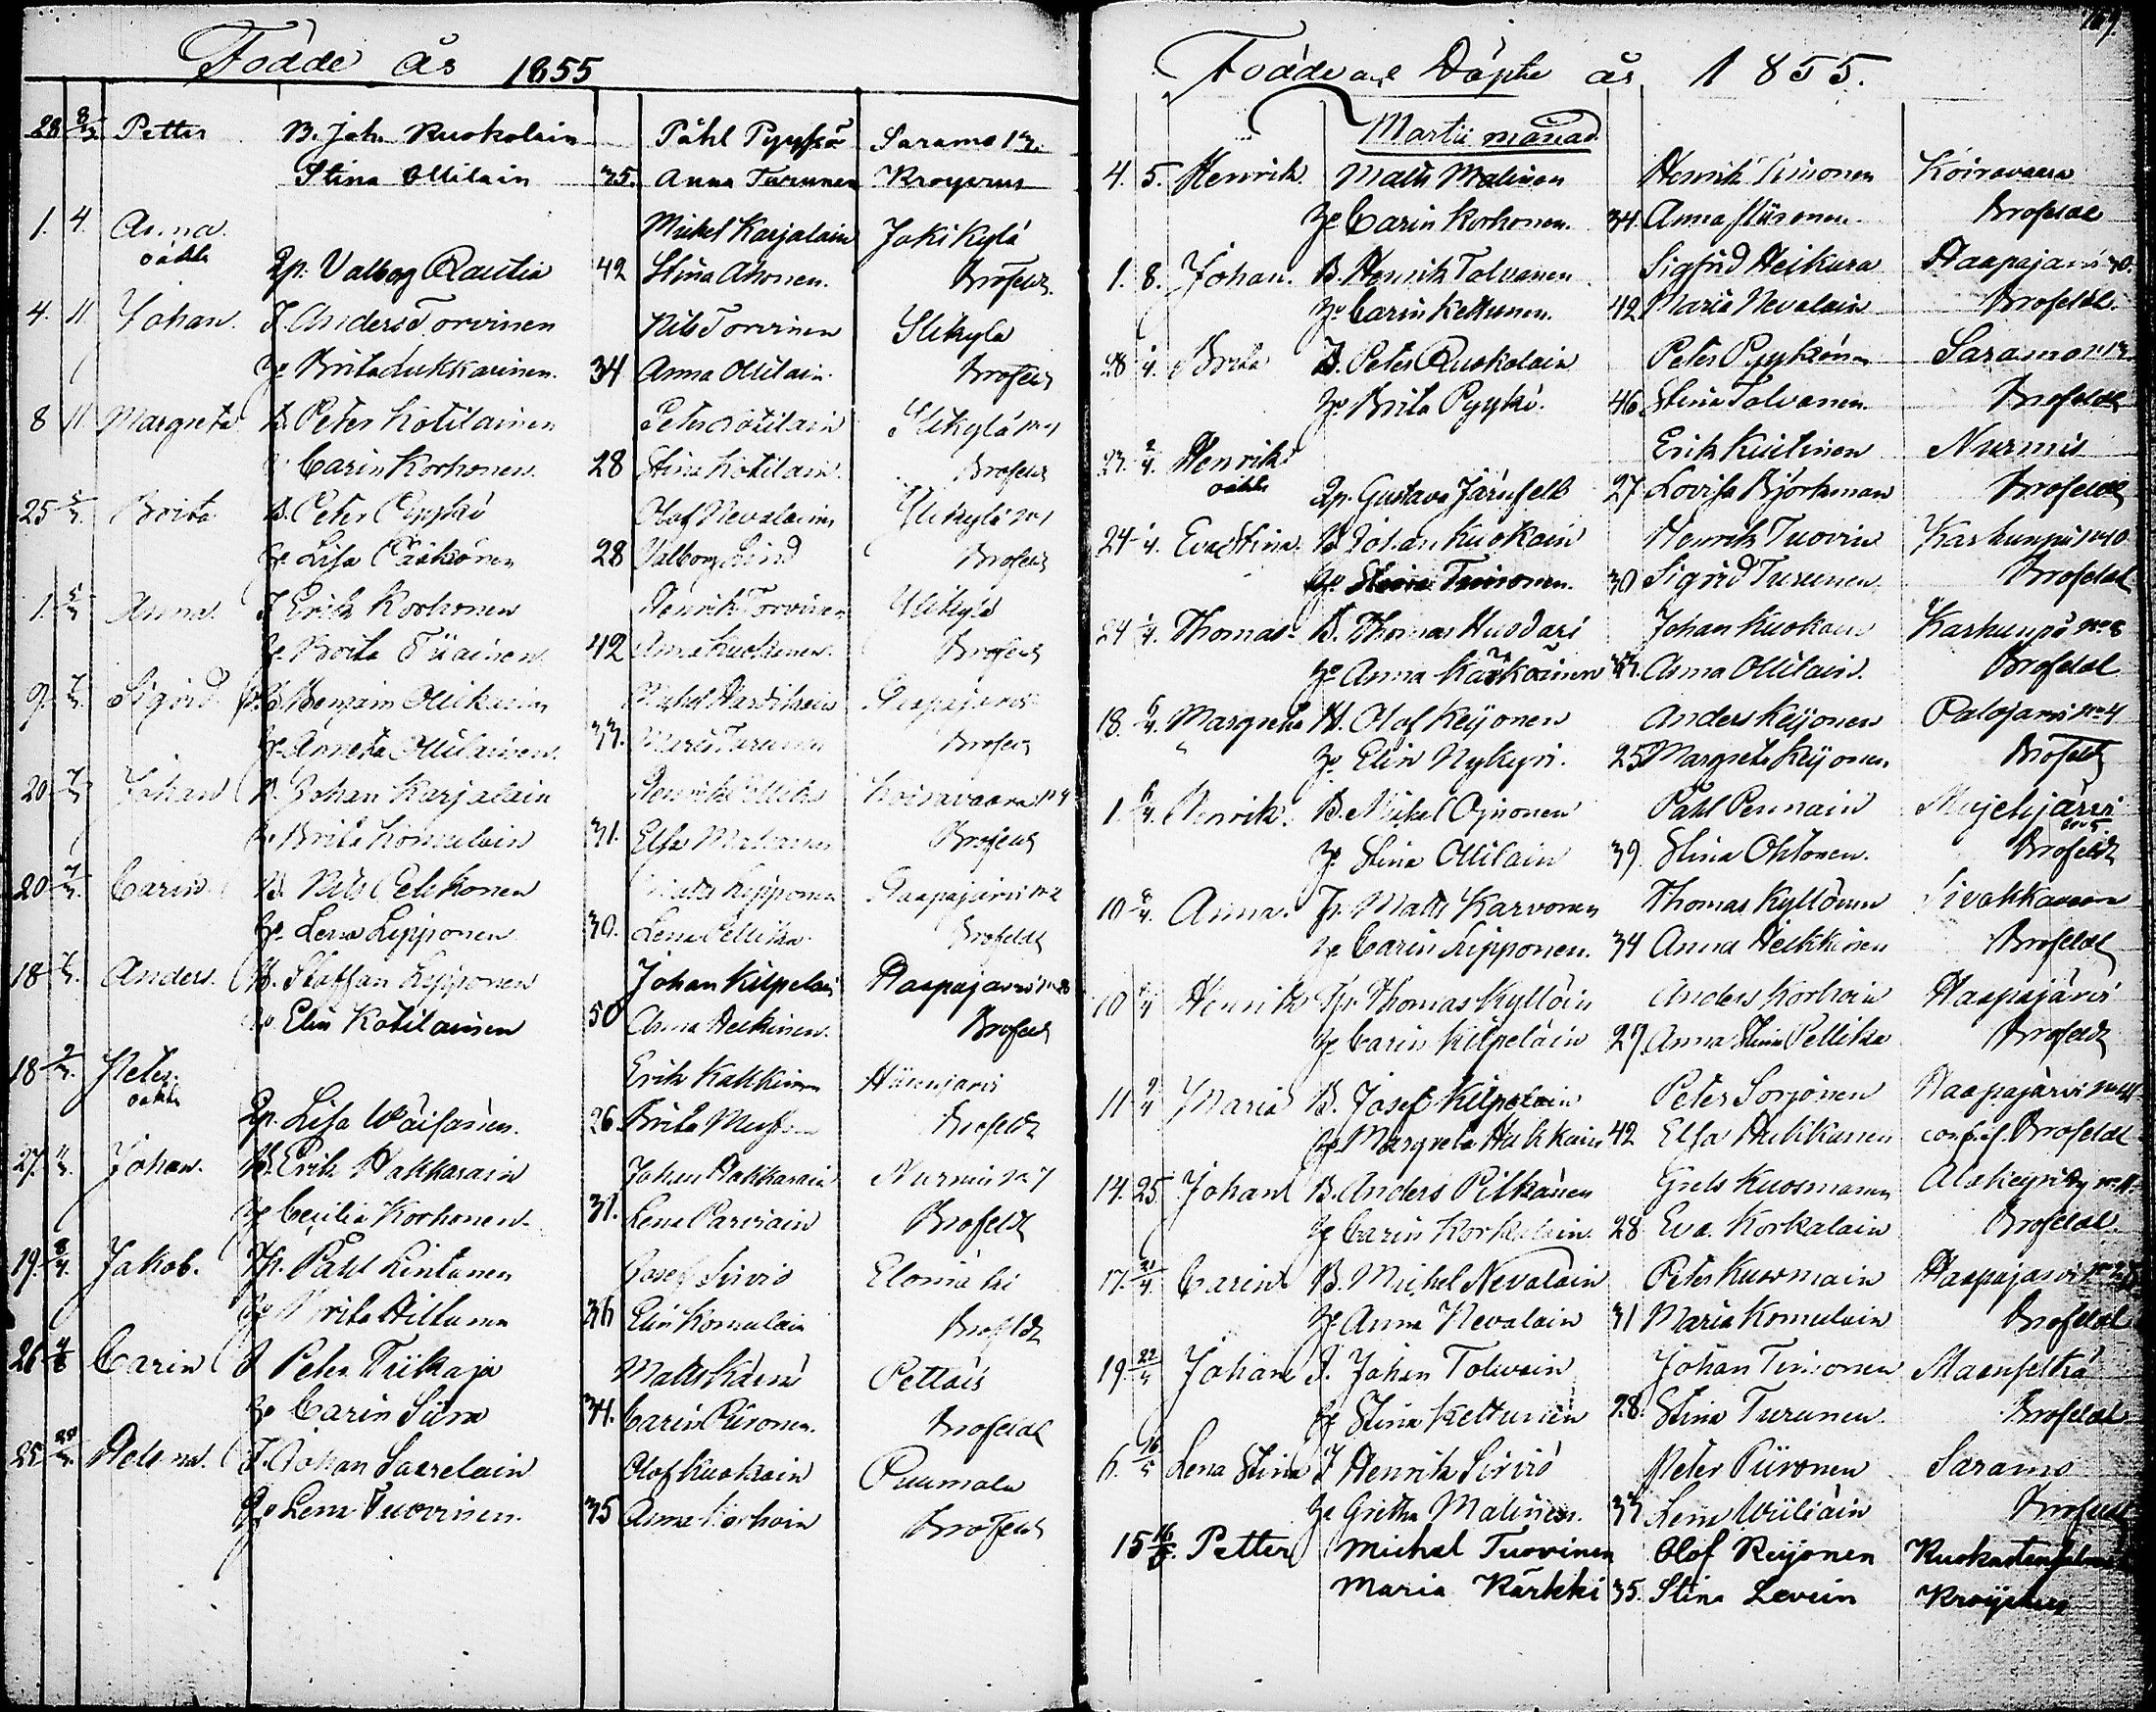 Födde år 1855
28 Petter B. Joh. Ruokolain Påhl Pyykkö Saramo 13.
Stina Ollilain 35. Anna Turunen Kroyerus
1. 4. Anna Michel Karjalain Jokikylä
oäkta Qp. Valborg Rautia 42 Stina Ahonen. Brofeldt
4. 11. Johan. I. Anders Torvinen Nils Torvinen Ylikylä
hu Brita Lukkarinen. 34 Anna Ollilain. Brofeldt
8 11 Margreta B. Peter Kotilainen Peter Kotilain Ylikylä No 1
Carin Korhonen. 28 Stina Kotilain Brofeldt
25 5/3 Brita B. Peter Pyykkö Olof Nevalain Ylikylä No 1
hu Lisa Pääkkönen 28 Valborg Lind Brofeldt
1. 5/3 Anna. I. Erik Korhonen Henrik Torvinen Ylikylä
hu Brita Tiiainen 42 Anna Kuokkanen Brofeldt
9. 7/3 Sigrid Benjam Ollikain Michel Hardikain Haapajärvi
hu Anneta Ollilainen. 33. Maria Turunen Brofeldt
20 7/3 Johan B. Johan Karjalain Henrik Koiravaara No 4
hu Brita Komulain 31. Elsa Malinen Brofeldt
20 7/3 Carin B. Nils Pelkonen Matts Lipponen Haapajärvi No 2
hu Lena Lipponen 30. Lena Pellika Brofeldt
18 7/3 Anders. B. Staffan Lipponen Johan Kilpeläin Haapajärvi No 20
hu Elin Kotilainen 50 Anna Heikinen. Brofeldt
18 9/3 Peter. Erik Kakkinen Hiinnjärvi
oäkta Qp. Lisa Wäisänen. 26. Brita Brofeldt
27. 11/3 Johan. B. Erik Hakkarain Johan Hakkarain Nurmis No 7
hu Cecilia Korhonen. 31. Lena Parviain Brofeldt
19. 8/4 Jakob. Th. Påhl Lintunen Josef Sirviö Elomäki
hu Brita Hiltunen 36 Elin Komulain Brofeldt
26 Carin I Peter Tiikaja Matts Kärnä Pettäis
hu Carin Siira 34. Carin Piironen. Brofeldt
25. Helena. I. Johan Saarelain Olof Kuokain Puumala
hu Lena Tuovinen. 35 Anna Korhoin Brofeldt
169.
Födde och Döpte år 1855.
Martii månad
4. 5. Henrik Matts Malinen Henrik Timonen Koiravaara
hu Carin Korhonen. 34. Anna Piironen. Brofeldt
1. 8. Johan. B. Henrik Tolvanen Sigfrid Heikura Haapajärvi 30.
hu Carin Kettunen. 42 Maria Nevalain Brofeldt.
28 1/4. Brita B. Peter Ruokolain Peter Pyykkönen Saramo No 13
hu Brita Pyykkö. 46. Stina Tolvanen. Brofeldt
23. 2/4. Henrik Erik Kiilinen Nurmis
oäkta Qp. Gustava Järnfelt 27. Lovisa Björkman Brofeldt
24 1/4. Eva Stina. B. Johan Kuokain Henrik Tuovin Karhunpä No 10
hu Stina Timonen. 30 Sigrid Turunen Brofeldt
24 1/4. Thomas B. Thomas Husdari Johan Kuokain Karhunpä No 8
hu Anna Kärkkäinen 33. Anna Ollilain. Brofeldt
18. 6/4. Margreta H. Olof Keijonen Anders Keijonen Palojärvi No 4
hu Elin Nykyri. 25 Margreta Keijonen. Brofeldt
1. 6/4. Henrik. B. Mickel Oinonen Påhl Pennain Mujejärvi No 5
hu Stina Ollilain 39. Stina Ohtonen. Brofeldt
10 8/4. Anna. Jn. Matts Karvonen Thomas Kyllönen Sivakkavaara
hu Carin Lipponen. 34 Anna Heikkinen Brofeldt
10 Henrik Jn. Thomas Kyllöin Anders Korhoin Haapajärvi
hu Carin Kilpeläin 27. Anna Stina Pellika Brofeldt
11 9/4 Maria B. Josef Kilpeläin Peter Sorjonen Haapajärvi No 41
hu Margreta Hakkain 42 Elsa Hukkanen Brofeldt
14. 25 Johan B. Anders Pitkänen Grels Kuosmanen Alakeyritty No 11.
hu Carin Korkalain. 28 Eva. Korkalain Brofeldt.
17. 21/4. Carin B. Michel Nevalain Peter Kuosmain Haapajärvi
hu Anna Nevalain 31 Maria Komulain Brofeldt
19 22/4 Johan I. Johan Tolvain Johan Timonen Maanselkä
hu Stina Kettunen 28. Stina Turunen. Brofeldt
6. 16/5 Lena Stina I Henrik Sirviö Peter Piironen Saramo
hu Gretha Malinen. 33 Lena Wiiliäin Brofeldt
15 16/6. Petter Michel Tuovinen Olof Reijonen
Maria Kärkki 35. Stina Levein Kroyerus